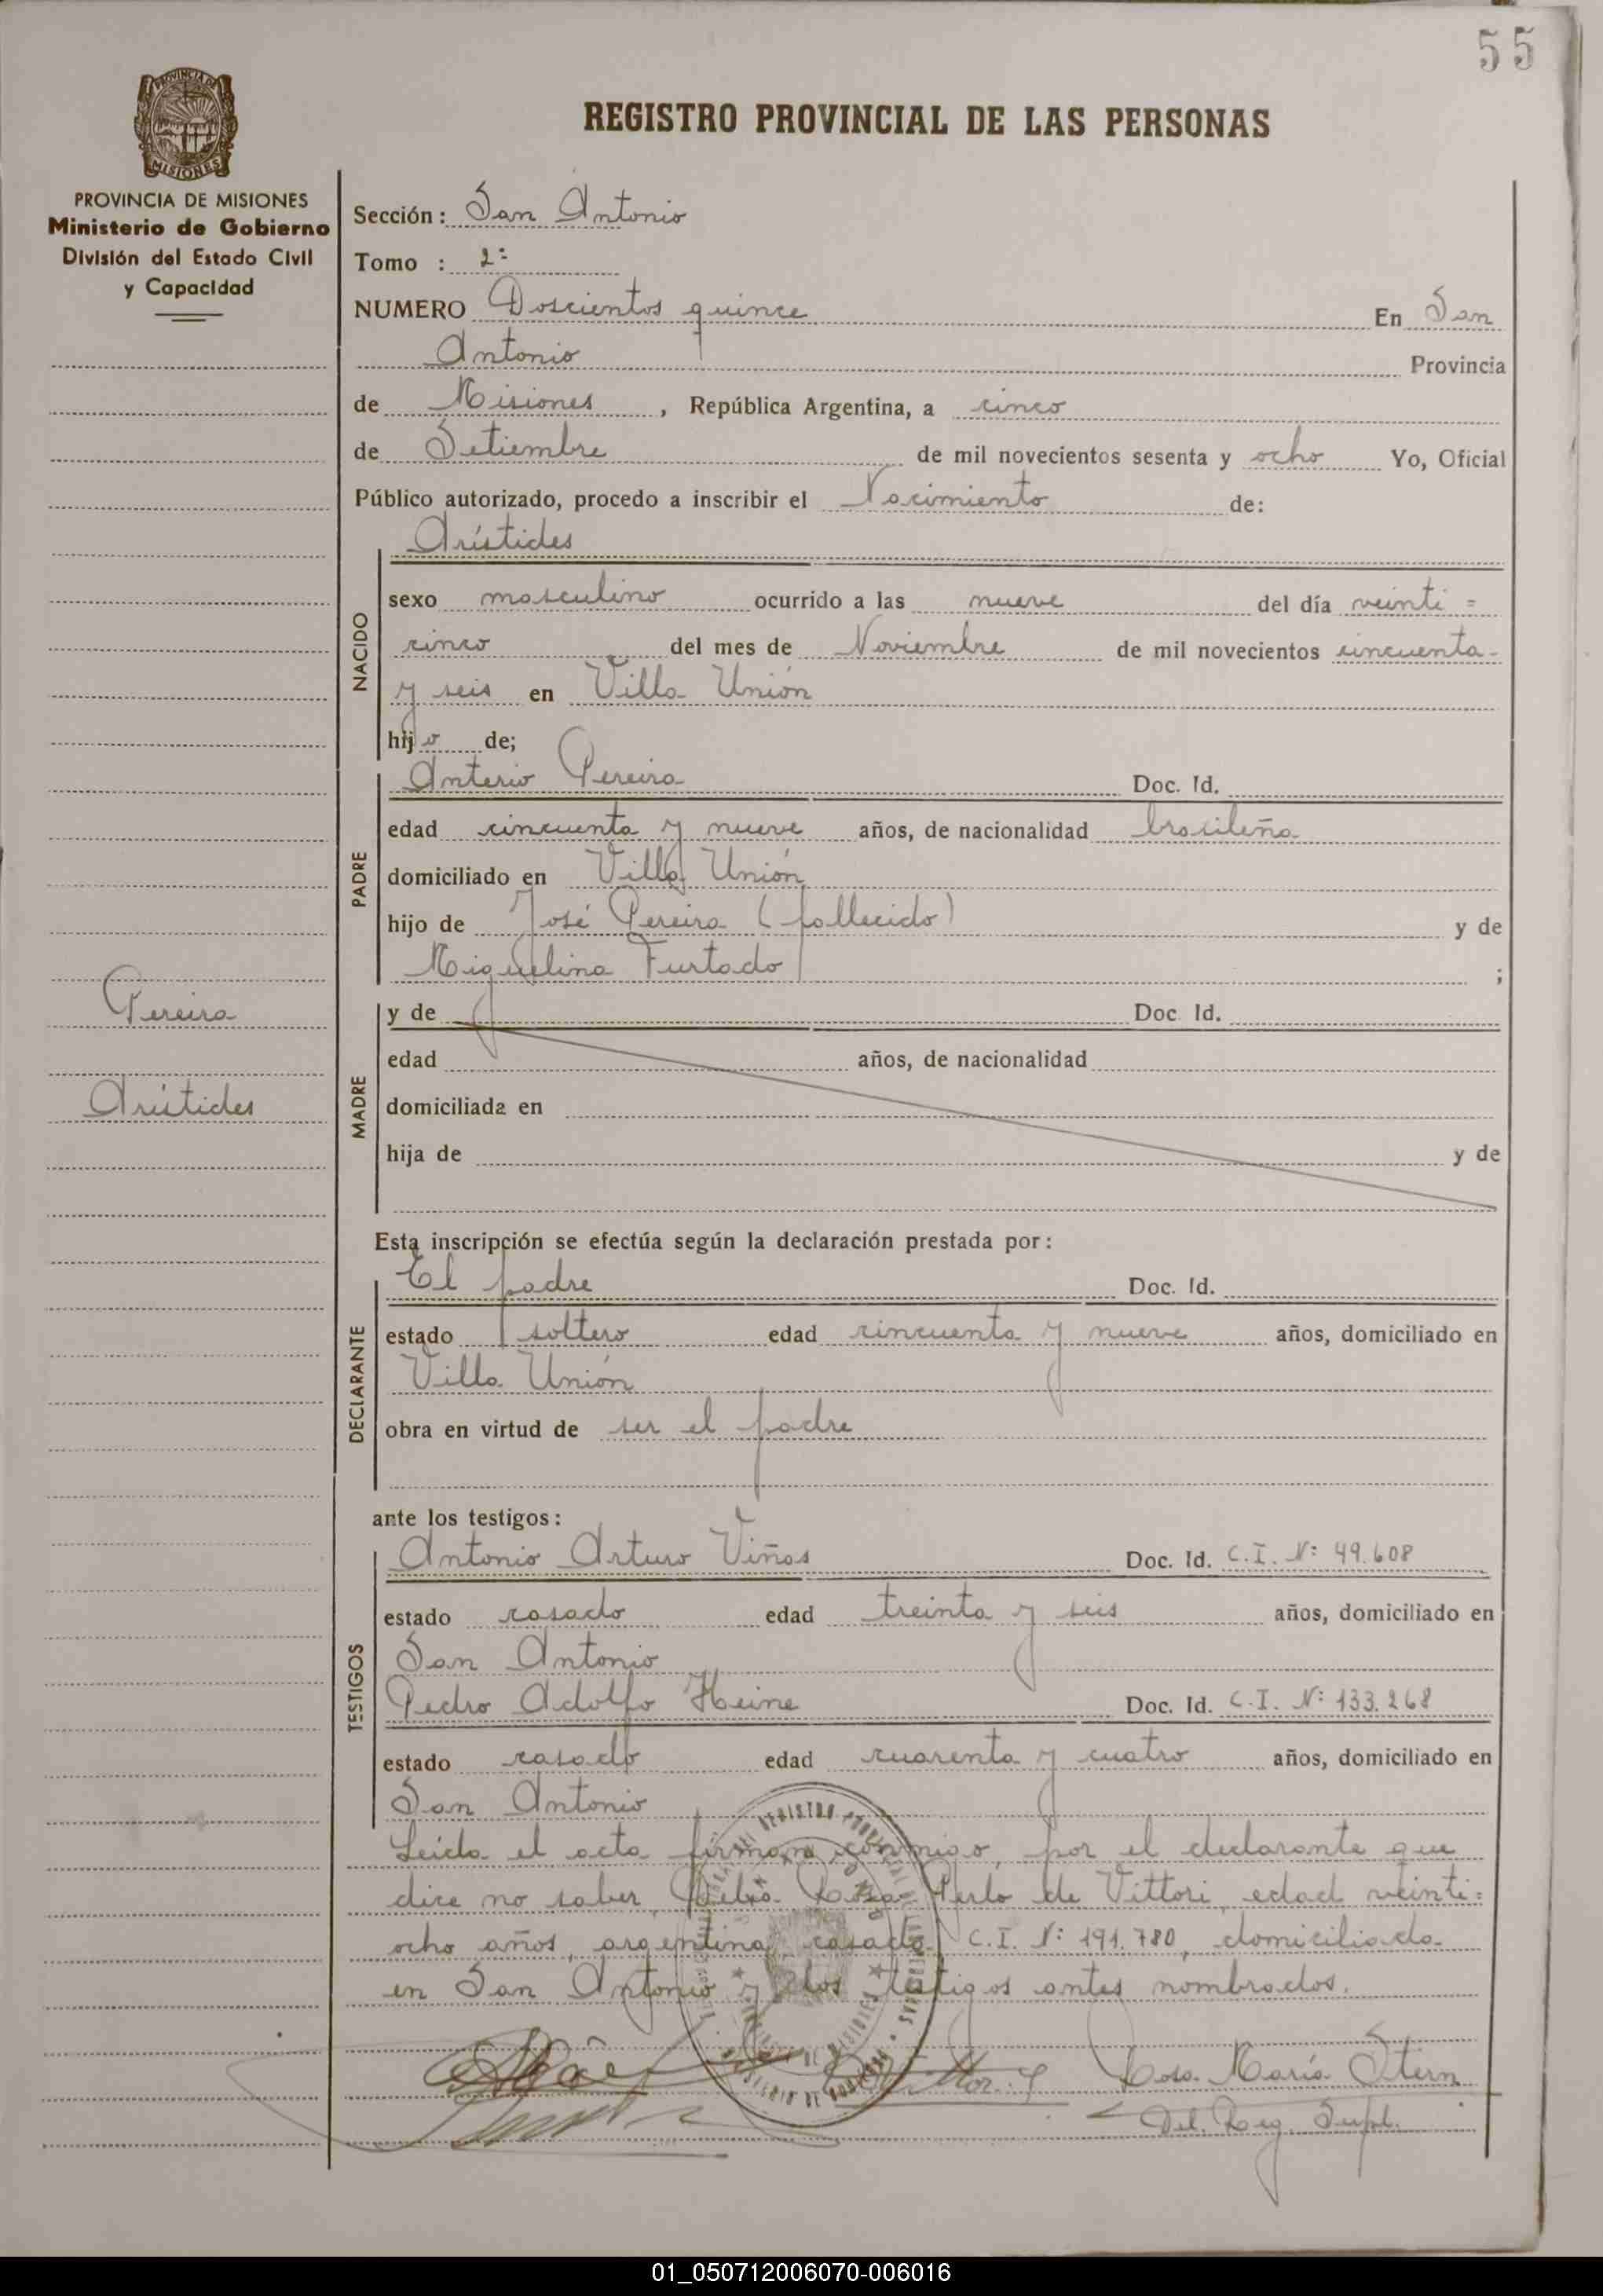 55
PROVINCIA DE MISIONES
REGISTRO PROVINCIAL DE LAS PERSONAS
PROVINCIA DE MISIONES
Ministerio de Gobierno
División del Estado Civil
y Capacidad
Sección: San Antonio
Tomo : 2º
NUMERO Doscientos quince En San
Antonio Provincia
de Misiones, República Argentina, a cinco
de Setiembre de mil novecientos sesenta y ocho Yo, Oficial
Público autorizado, procedo a inscribir el Nacimiento de:
Arístides
NACIDO
sexo masculino ocurrido a las nueve del día veinti=
cinco del mes de Noviembre de mil novecientos cincuenta-
y seis en Villa Unión
hijo de;
PADRE
Anterio Pereira Doc. Id.
edad cincuenta y nueve años, de nacionalidad brasileña
domiciliado en Villa Unión
hijo de José Pereira (fallecido) y de
Miguelina Furtado ;
Pereira
Arístides
MADRE
y de Doc. Id.
edad años, de nacionalidad
domiciliada en
hija de y de
Esta inscripción se efectúa según la declaración prestada por:
DECLARANTE
El padre Doc. Id.
estado soltero edad cincuenta y nueve años, domiciliado en
Villa Unión
obra en virtud de ser el padre
ante los testigos:
TESTIGOS
Antonio Arturo Viñas Doc. Id. C.I. Nº 49.608
estado casado edad treinta y seis años, domiciliado en
San Antonio
Pedro Adolfo Heine Doc. Id. C.I. Nº 133.268
estado casado edad cuarenta y cuatro años, domiciliado en
San Antonio
Leída el acta firman conmigo, por el declarante que
dice no saber, Rosa Perlo de Vittori, edad veinti=
ocho años, argentina, casada, C.I. Nº 191.780, domiciliada
en San Antonio y los testigos antes nombrados.
Rosa María Stern
Del. Reg. Supl.
01_050712006070-006016